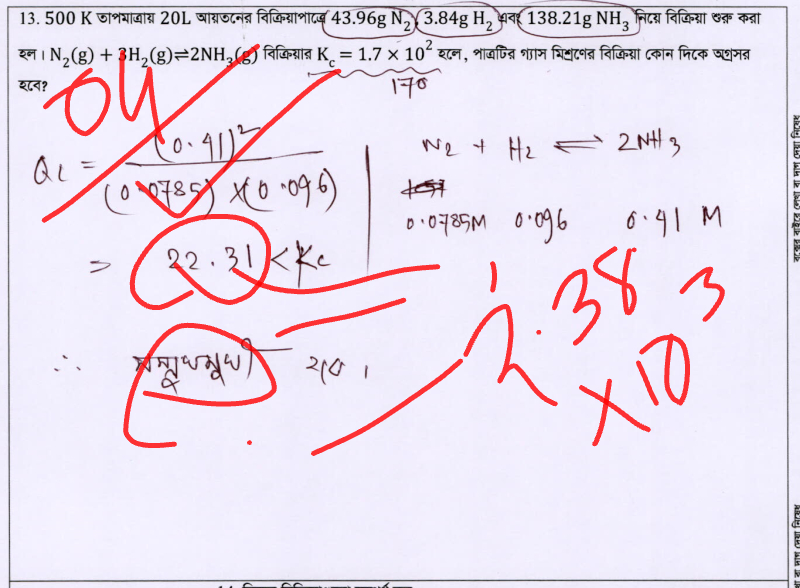 13. 500 K তাপমাত্রায় 20L আয়তনের বিক্রিয়াপাত্রে 43.96g N₂, 3.84g H₂ এবং 138.21g NH₃ নিয়ে বিক্রিয়া শুরু করা
হল। N₂(g) + 3H₂(g)⇌2NH₃(g) বিক্রিয়ার K_c = 1.7 × 10² হলে, পাত্রটির গ্যাস মিশ্রণের বিক্রিয়া কোন দিকে অগ্রসর
হবে?
170
04
Qc = (0.41)² / (0.0785) × (0.096)
N₂ + H₂ ⇌ 2NH₃
0.0785M 0.096 0.41 M
⇒ 22.31 < Kc
2.38 × 10³
∴ সম্মুখমুখী হবে।
বক্সের বাইরে লেখা বা দাগ দেয়া নিষেধ